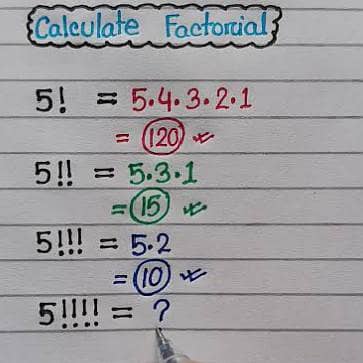 Calculate Factorial
5! = 5.4.3.2.1
= 120
5!! = 5.3.1
= 15
5!!! = 5.2
= 10
5!!!! = ?